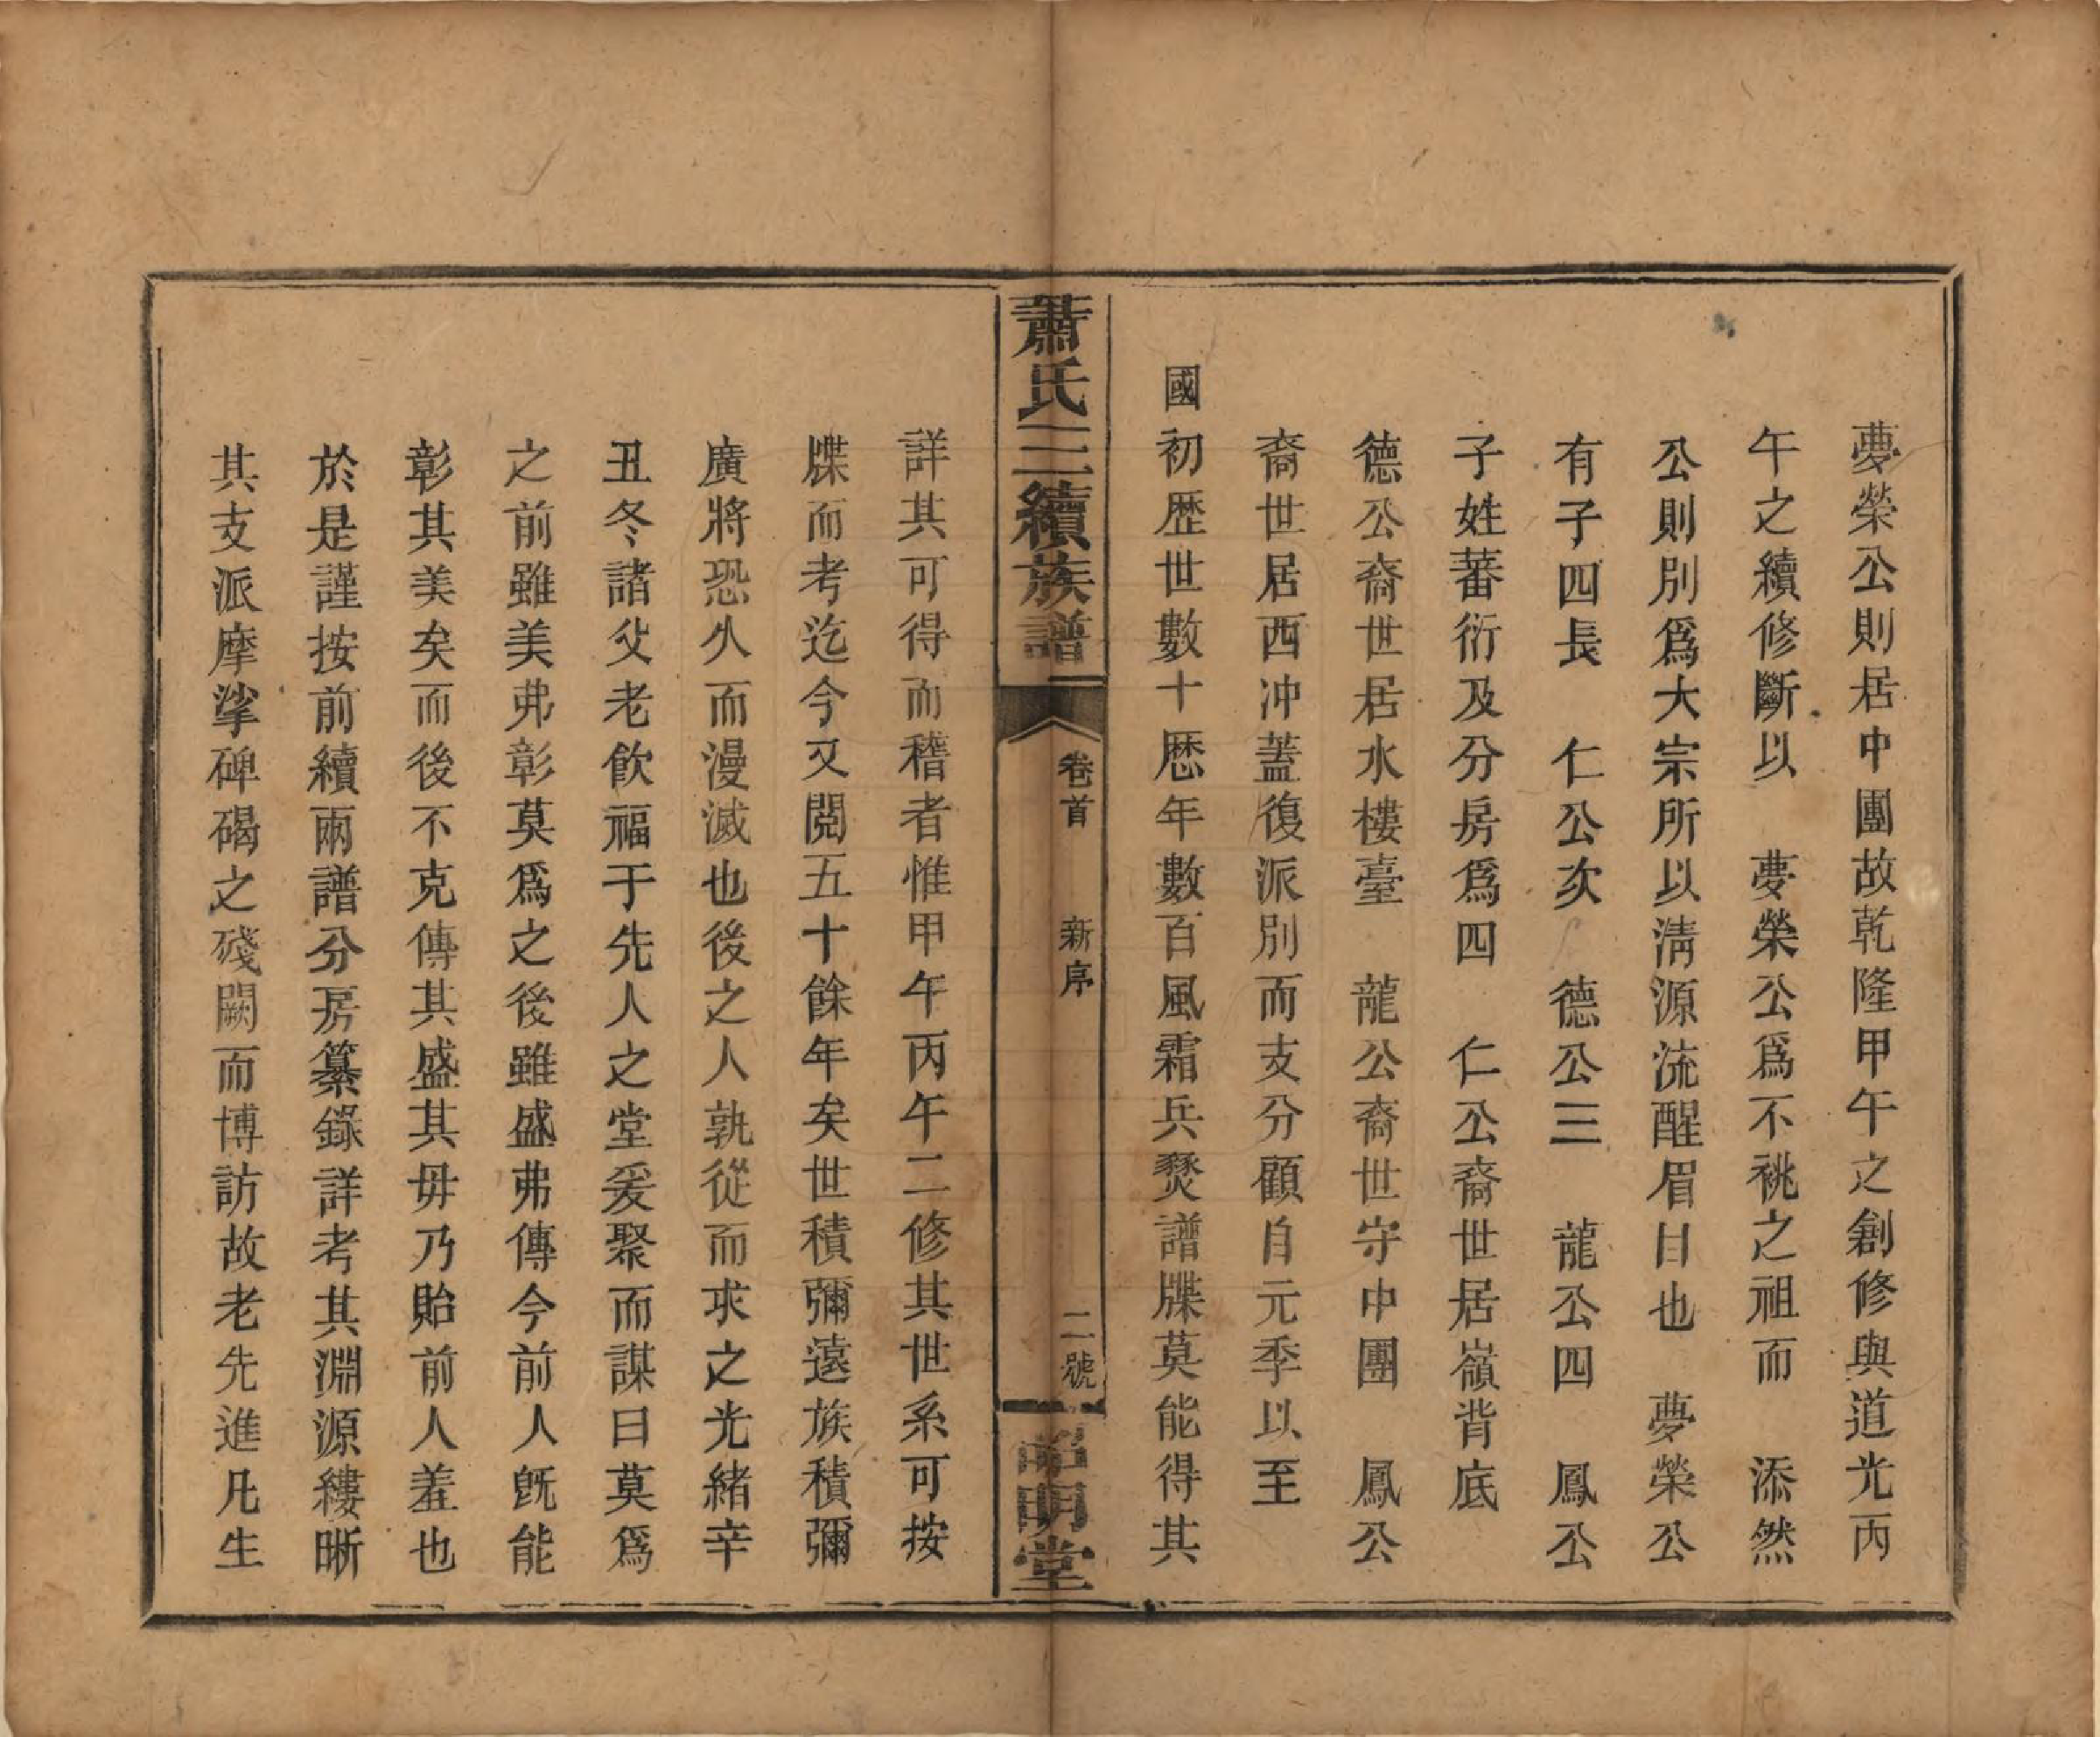 夢榮公則居中團故乾隆甲午之創修與道光丙
午之續修斷以　夢榮公爲不祧之祖而　添然
公則別爲大宗所以淸源流醒眉目也　夢榮公
有子四長　仁公次　德公三　龍公四　鳳公
子姓蕃衍及分房爲四　仁公裔世居嶺背底
德公裔世居水樓臺　龍公裔世守中團　鳳公
裔世居西冲蓋復派別而支分顧自元季以至
國初歴世數十歴年數百風霜兵燹譜牒莫能得其
蕭氏三續族譜　卷首　新序　二號　明堂
詳其可得而稽者惟甲午丙午二修其世系可按
牒而考迄今又閱五十餘年矣世積彌遠族積彌
廣將恐久而漫滅也後之人孰從而求之光緒辛
丑冬諸父老飲福于先人之堂爰聚而謀曰莫爲
之前雖美弗彰莫爲之後雖盛弗傳今前人旣能
彰其美矣而後不克傳其盛其毋乃貽前人羞也
於是謹按前續兩譜分房纂錄詳考其淵源縷晰
其支派摩挲碑碣之殘闕而博訪故老先進凡生